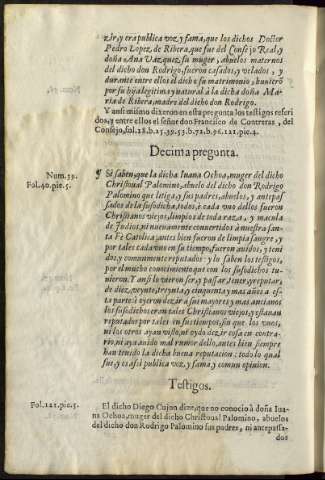 zir, y era publica voz y fama, que los dichos Doctor
Pedro Lopez de Ribera, que fue del Consejo Real, y
doña Ana Vazquez su muger, abuelos maternos
del dicho don Rodrigo, fueron casados, y velados, y
durante entre ellos el dicho su matrimonio, huuierō
por su hija legitima y natural à la dicha doña Ma
ria de Ribera, madre del dicho don Rodrigo.
Y ansi mismo dixeron en esta pregunta los testigos referi
dos, y entre ellos el señor don Francisco de Contreras, del
Consejo, fol. 18. b. 25. 39. 53. b. 72. b. 96. 121. pie. 4.
Decima pregunta.
Num. 59.
Fol. 40. pie. 5.
¶ Si saben, que la dicha Iuana Ochoa, muger del dicho
Christoual Palomino, abuelo del dicho don Rodrigo
Palomino que litiga, y sus padres, abuelos, y antepas
sados de la susodicha, todos, è cada uno dellos fueron
Christianos viejos, limpios de toda raza, y macula
de Iudios, ni nueuamente conuertidos à nuestra san-
ta Fè Catolica, antes bien fueron de limpia sangre, y
por tales cada uno en su tiempo, fueron auidos, y teni
dos, y comunmente reputados: y lo saben los testigos,
por el mucho conocimiento que con los susodichos tu-
uieron. Y ansi lo vieron ser, y passar, tener, y reputar,
de diez, veynte, treynta, y cinquenta y mas años a es-
ta parte: y oyeron dezir a sus mayores y mas ancianos
los susodichos eran tales Christianos viejos, y estauan
reputados por tales en sus tiempos, sin que los unos,
ni los otros ayan visto, ni oydo dezir cosa en contra-
rio, ni aya auido mal rumor dello, antes bien siempre
han tenido la dicha buena reputacion: todo lo qual
fue, y es assi publica voz, y fama, y comun opinion.
Testigos.
Fol. 121. pie. 5.
El dicho Diego Cujon dize, que no conocio à doña Iua
na Ochoa, muger del dicho Christoual Palomino, abuelos
del dicho don Rodrigo Palomino sus padres, ni antepassa-
dos